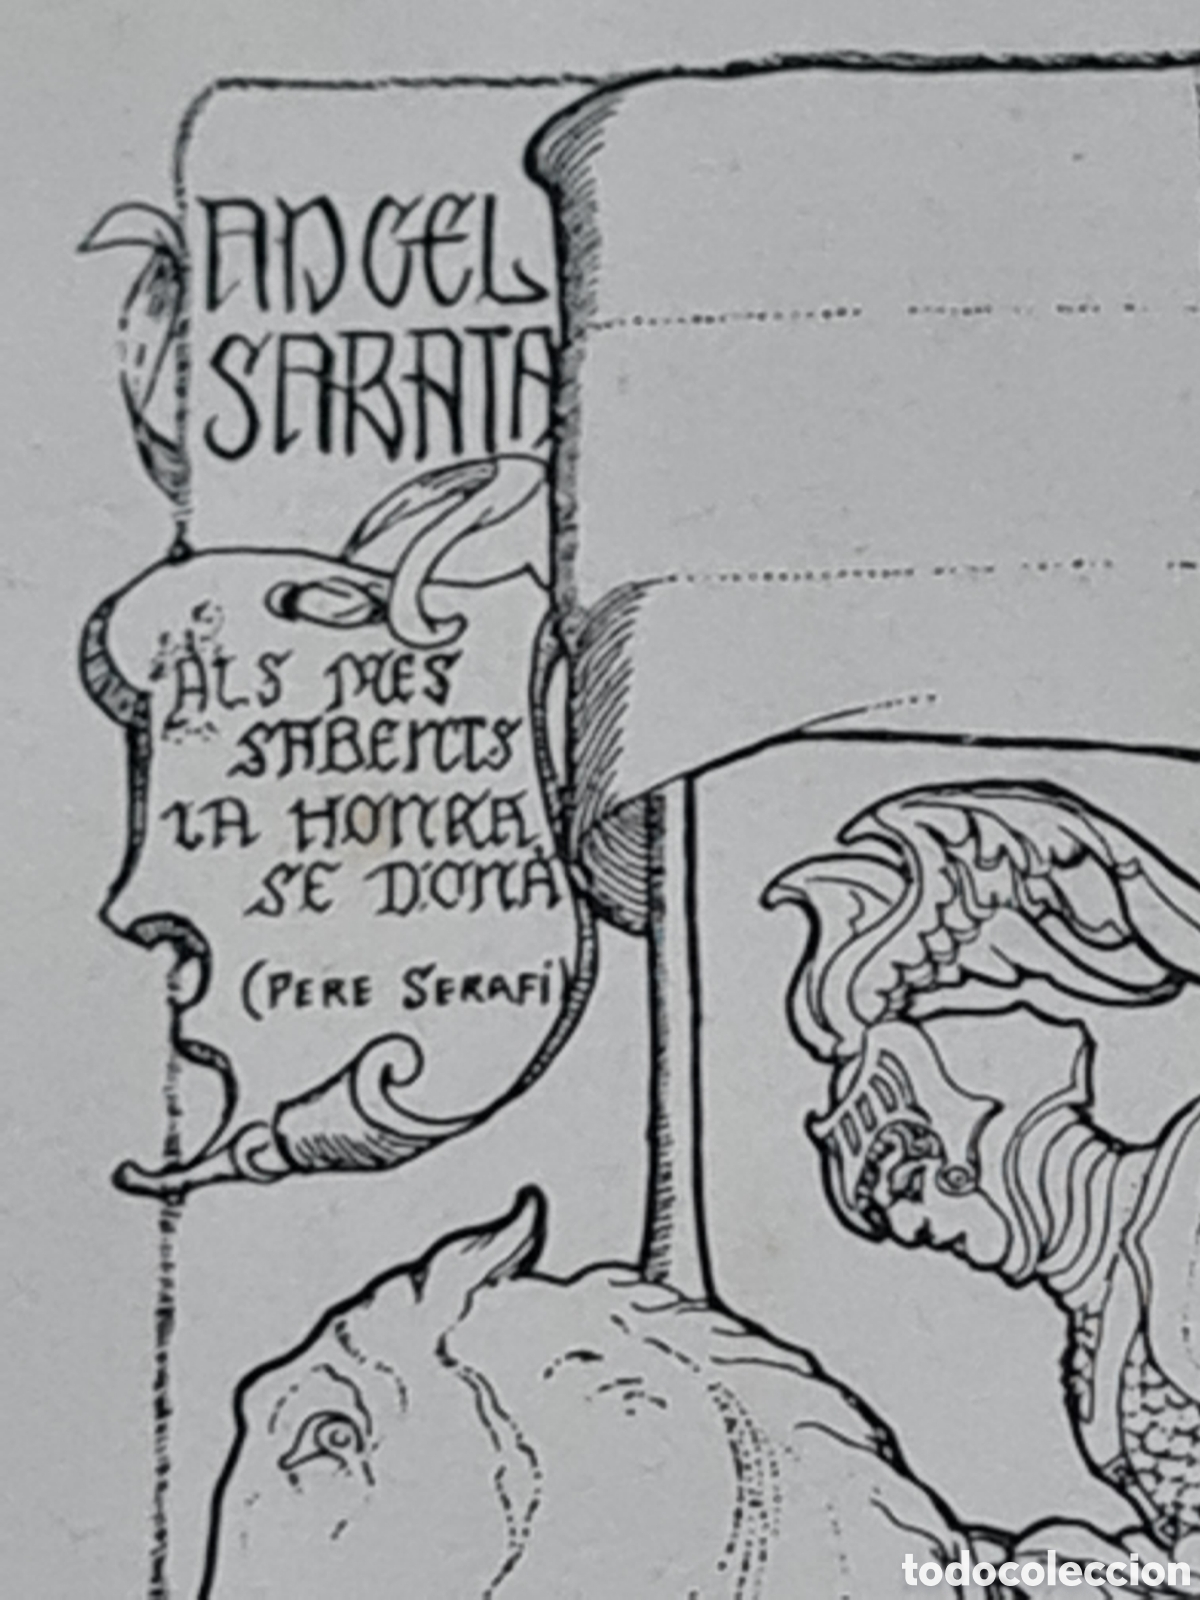 ANGEL
SABATA
ALS MES
SABENTS
LA HONRA
SE DONA
(PERE SERAFÍ)
todocoleccion